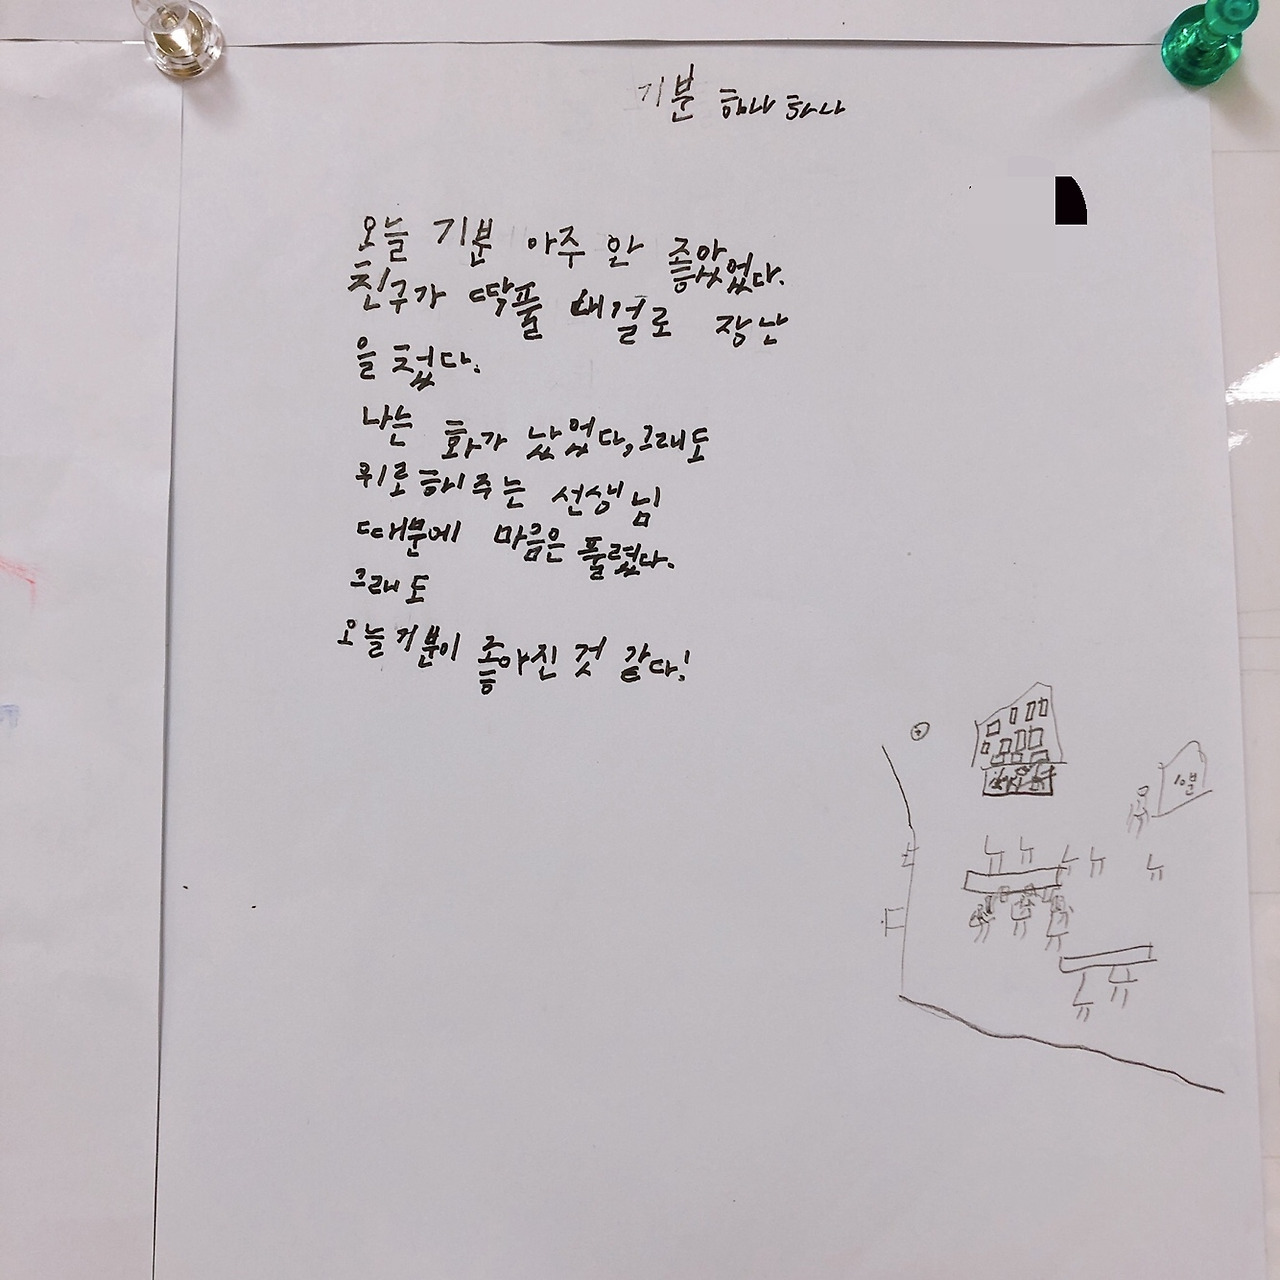 기분 하나 하나
오늘 기분 아주 안 좋았었다.
친구가 딱풀 뚜껑로 장난
을 쳤다.
나는 화가 났었다, 그래도
위로 해주는 선생님
때문에 마음은 풀렸다.
그래도
오늘 기분이 좋아진 것 같다!